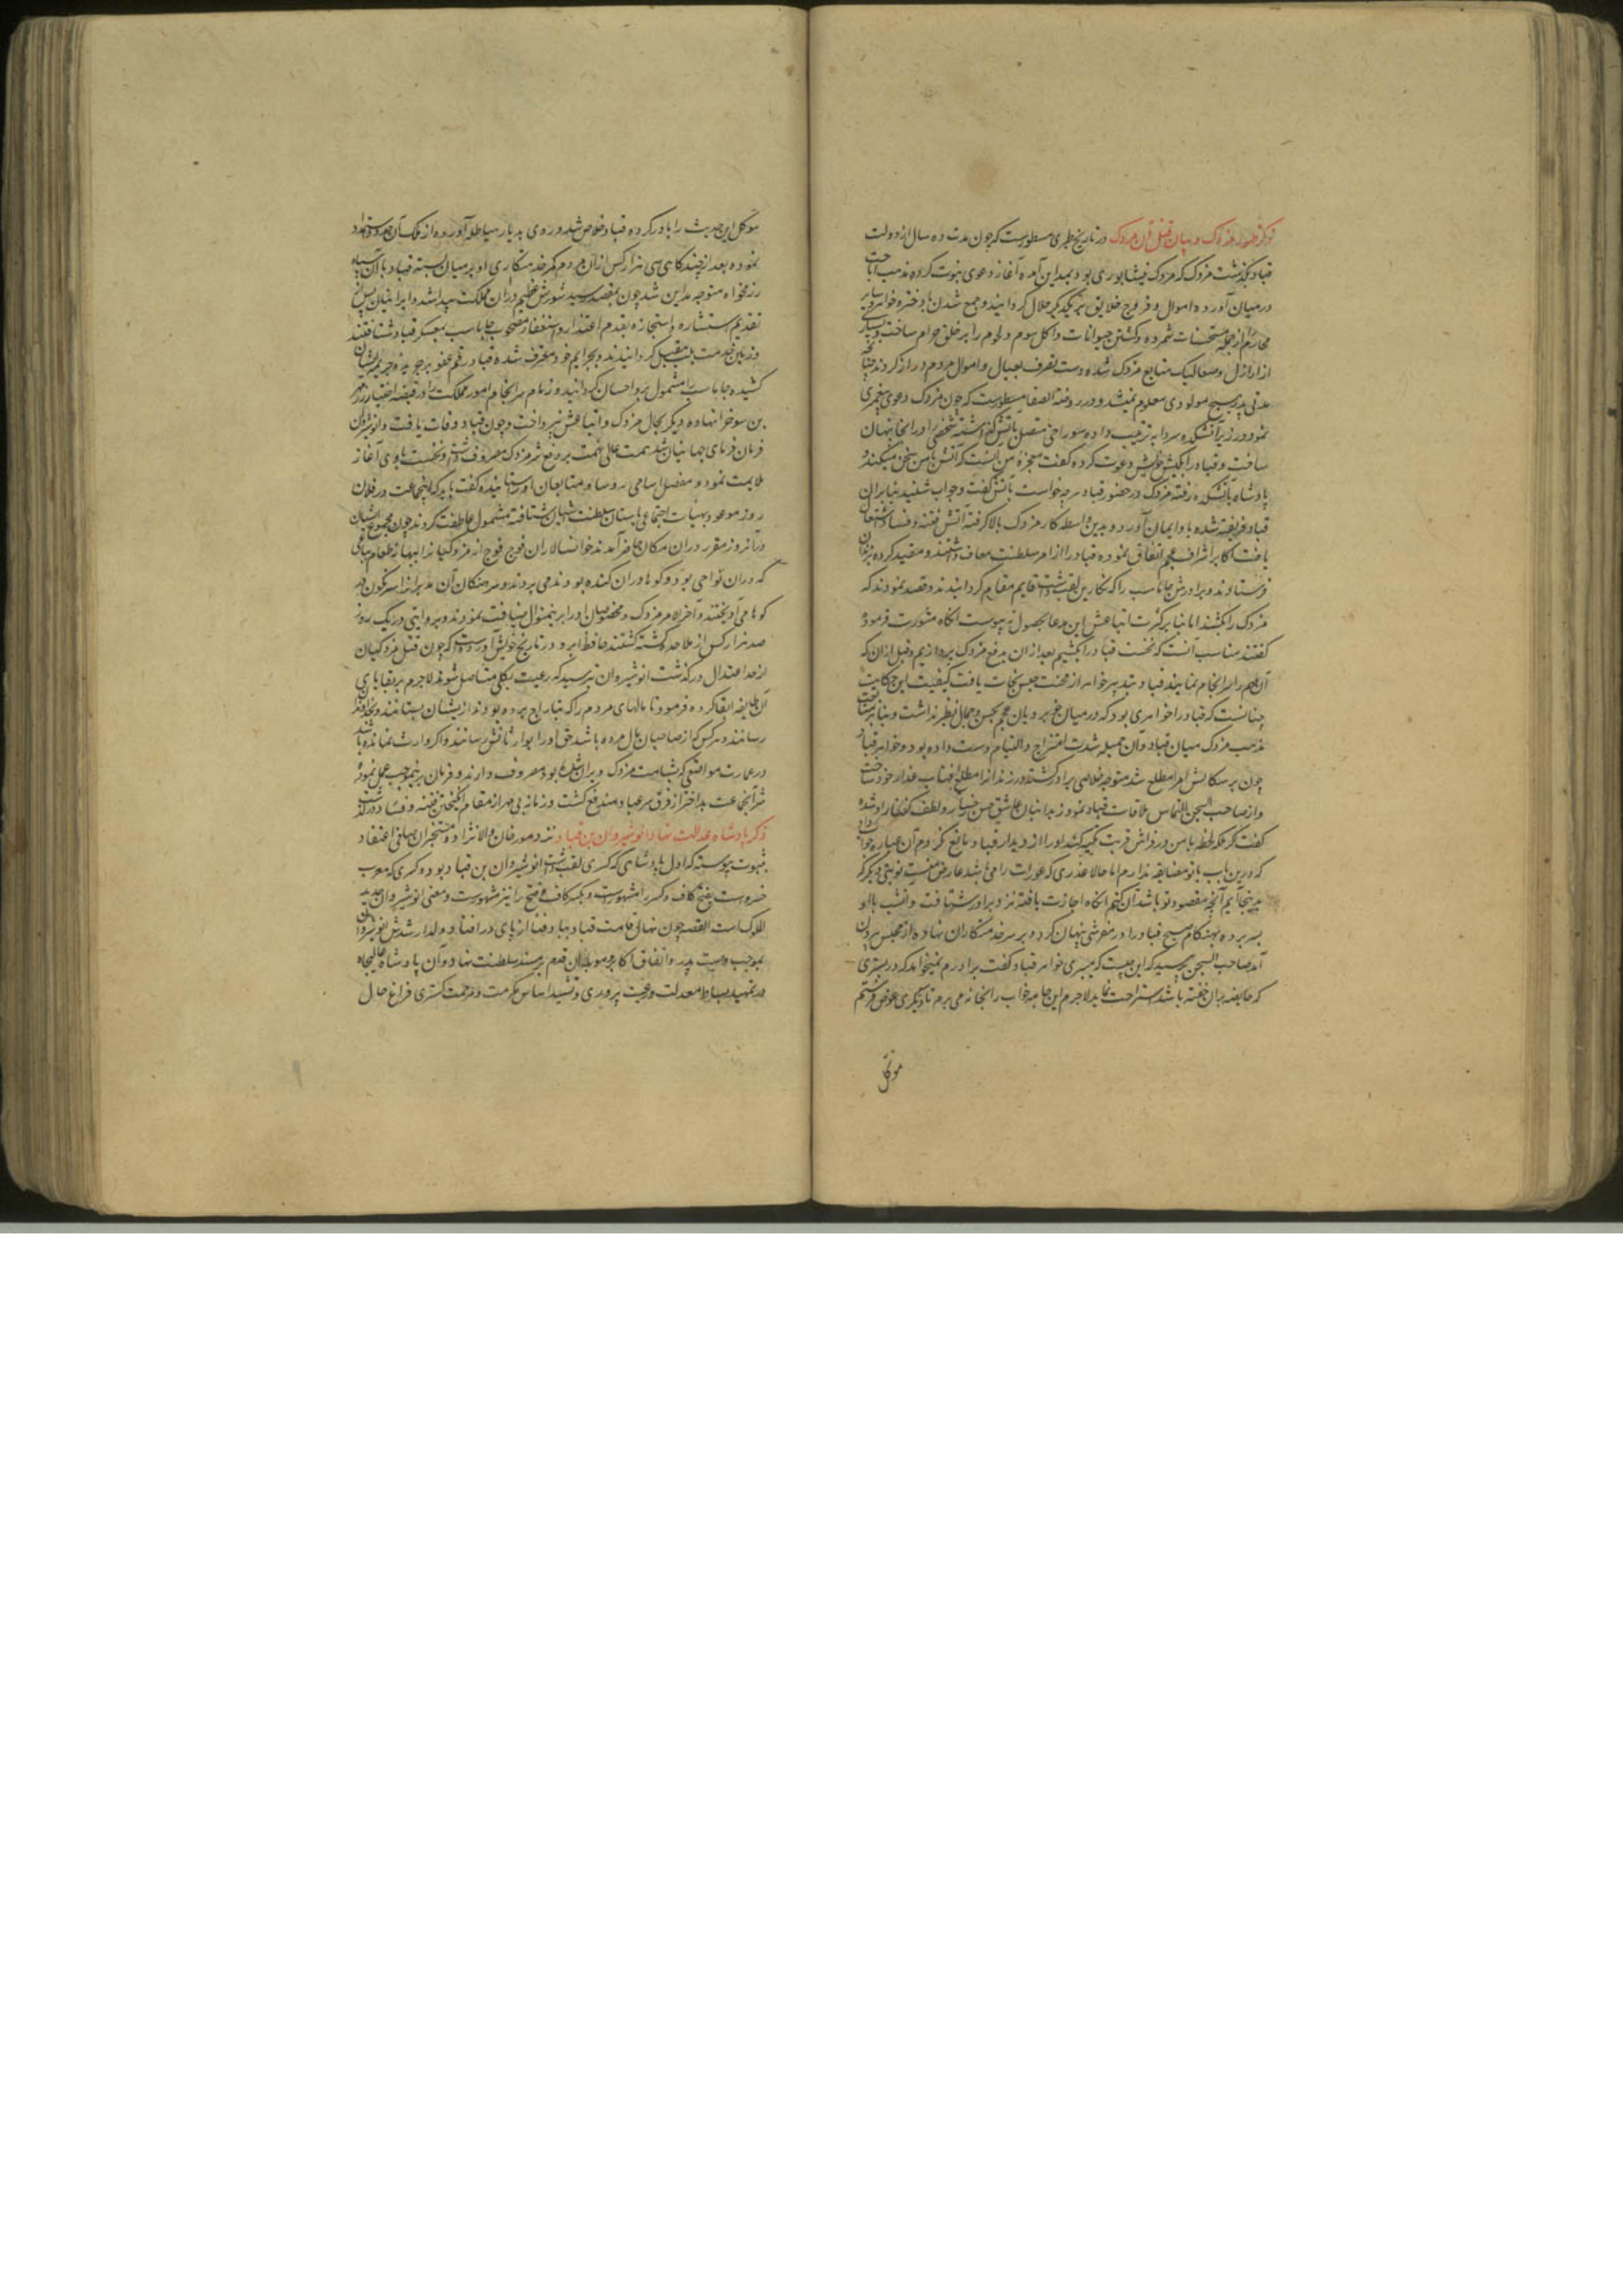 ذکر ظهور مزدک و بیان قتل آن مردک در تاریخ طبری مسطورست که چون مدت ده سال از دولت
قباد بگذشت مزدک که مزدک نیشابوری بود بمداین آمده آغاز دعوی نبوت کرده مذهب اباحت
در میان آورده اموال و فروج خلایق بر یکدیگر حلال گردانید و جمع شدن با دختر و خواهر و سایر
محارم را از جمله مستحسنات شمرده و کشتن حیوانات و اکل سوم و لحوم را بر خلق حرام ساخت و بسیاری
از اراذل و صعالیک متابع مزدک شده دست تصرف بعیال و اموال مردم دراز کردند چنانچه
مدتی پدر هیچ مولودی معلوم نمیشد و در روضة الصفا مسطورست که چون مزدک دعوی پیغمبری
نمود در زیر آتشکده سردابه ترتیب داده سوراخی متصل بآتش گذاشته شخصی را در آنجا پنهان
ساخت و قباد را بکیش خویش دعوت کرده گفت معجزه من آنست که آتش با من سخن میکند و
پادشاه بآتشکده رفته مزدک در حضور قباد هرچه خواست بآتش گفت و جواب شنید بنابران
قباد فریفته شده باو ایمان آورد و بدین واسطه کار مزدک بالا گرفته آتش فتنه و فساد اشتعال
یافت اکابر اشراف عجم اتفاق نموده قباد را از امر سلطنت معاف داشتند و مقید کرده بزندان
فرستادند و برادرش جاماسب را که نکارین لقب داشت قایم مقام گردانیدند و قصد نمودند که
مزدک را بکشند اما بنابر کثرت اتباعش این مدعا بحصول نپیوست آنگاه مشورت فرموده
گفتند مناسب آنست که نخست قباد را بکشیم بعد از آن بدفع مزدک پردازیم و قبل از آن که
آن مهم را سرانجام نمایند قباد بتدبیر خواهر از محنت حبس نجات یافت کیفیت این حکایت
چنانست که قباد را خواهری بود که در میان خوبرویان عجم بحسن و جمال نظیر نداشت و بنابر متابعت
مذهب مزدک میان قباد و آن جمیله شدت امتزاج و التیام دست داده بود و خواهر قباد
چون بر سکالش امرا مطلع شد متوجه خلاصی برادر گشته روز زندان را مطلع آفتاب عذار خود ساخت
و از صاحب السجن التماس ملاقات قباد نمود زندانبان عاشق حسن رخسار و لطف گفتار او شده
گفت گر ملکه لحظه با من در فراش قربت تکیه کند او را از دیدار قباد مانع نگردم آن عیاره جواب داد
که درین باب با تو مضایقه ندارم اما حالا عذری که عورات را می‌باشد عارض منست نوبتی دیگر که
بدینجا آیم آنچه مقصود تو باشد آن کنم آنگاه اجازت یافته نزد برادر شتافت و آنشب با او
بسر برده بهنگام صبح قباد را در مفرشی پنهان کرد و بر سر خدمتکاران نهاده از محبس بیرون
آمد صاحب السجن پرسید که این چیست که میبری خواهر قباد گفت برادرم نمیخواهد که در بستری
که حایضه بران خفته باشد استراحت نماید لاجرم این جامه خواب را بخانه می‌برم تا دیگری عوض فرستم
موکل
موکل این حدیث را باور کرده قباد خلاص شد و روی بدیار هیاطله آورده از ملک آن حدود استمداد
نموده بعد از چندگاهی سی هزار کس از آن مردم کمر خدمتکاری او بر میان بسته قباد با آن سپاه
رزمخواه متوجه مداین شد چون بمقصد رسید شورش عظیم دران مملکت پیدا شد و ایرانیان پس از
تقدیم استشاره و استجازه بقدم اعتذار و استغفار مصحوب جاماسب بمعسکر قباد شتافتند
و زمین خدمت بلب مقبل گردانیدند و بجرایم خود معترف شده قباد رقم عفو بر جریده جریمه ایشان
کشیده جاماسب را مشمول بر و احسان گردانید و زمام سرانجام امور مملکت را در قبضه اختیار زرمهر
بن سوخرا نهاده دیگر بحال مزدک و اتباعش نپرداخت و چون قباد وفات یافت و انوشیروان
فرمان فرمای جهانیان شد همت عالی نهمت بر دفع شر مزدک معروف داشته و نخست با وی آغاز
ملایمت نمود و مفصل اسامی روسا و متابعان او ستانیده گفت باید که اینجماعت در فلان
روز موعود بهیات اجتماعی بآستان سلطنت آشیان شتافته مشمول عاطفت گردند چون مجموع ایشان
در آنروز مقرر دران مکان حاضر آمدند خوانسالاران فوج فوج از مزدکیان را ببهانه طعام بباغی
که دران نواحی بود و گوها دران کنده بودند می بردند و سرهنگان آن مدبران را سرنگون در
گوها می آویختند و آخر الامر مزدک و مخصوصان او را برینمنوال ضیافت نمودند و بروایتی در یک روز
صد هزار کس از ملاحده کشته گشتند حافظ ابرو در تاریخ خویش آورده است که چون قتل مزدکیان
از حد اعتدال درگذشت انوشیروان ترسید که رعیت بکلی مستاصل شوند لاجرم بر بقایای
آن طایفه ابقا کرده فرمود تا مالهای مردم را که بتاراج برده بودند از ایشان بستانند و بخداوندان
رسانند و هرکس که از صاحبان مال مرده باشد حق او را بوارثانش رسانند و اگر وارث نمانده باشد
در عمارت مواضعی که بشامت مزدک ویران شده بود معروف دارند و فرمان برینموجب عمل نموده
شر آنجماعت بد اختر از فرق سر عباد مندفع گشت و زمانه بی مهر از مقام انگیختن فتنه و فساد درگذشت
ذکر پادشاه عدالت نهاد انوشیروان بن قباد نزد مورخان والانژاد و مستخبران صافی اعتقاد
بثبوت پیوسته که اول پادشاهی که کسری لقب داشت انوشیروان بن قباد بود و کسری که معرب
خسروست بفتح کاف و کسر را مشهورست و بکسر کاف و فتح را نیز مشهورست و معنی انوشیروان جدید
الملوک است القصه چون نهال قامت قباد بباد فنا از پای در افتاد ولد ارشدش انوشیروان
بموجب وصیت پدر و اتفاق اکابر و موبدان قدم بر مسند سلطنت نهاد و آن پادشاه عالیجاه
در تمهید بساط معدلت و رعیت پروری و تشیید اساس مکرمت و مرحمت گستری فراغ حال